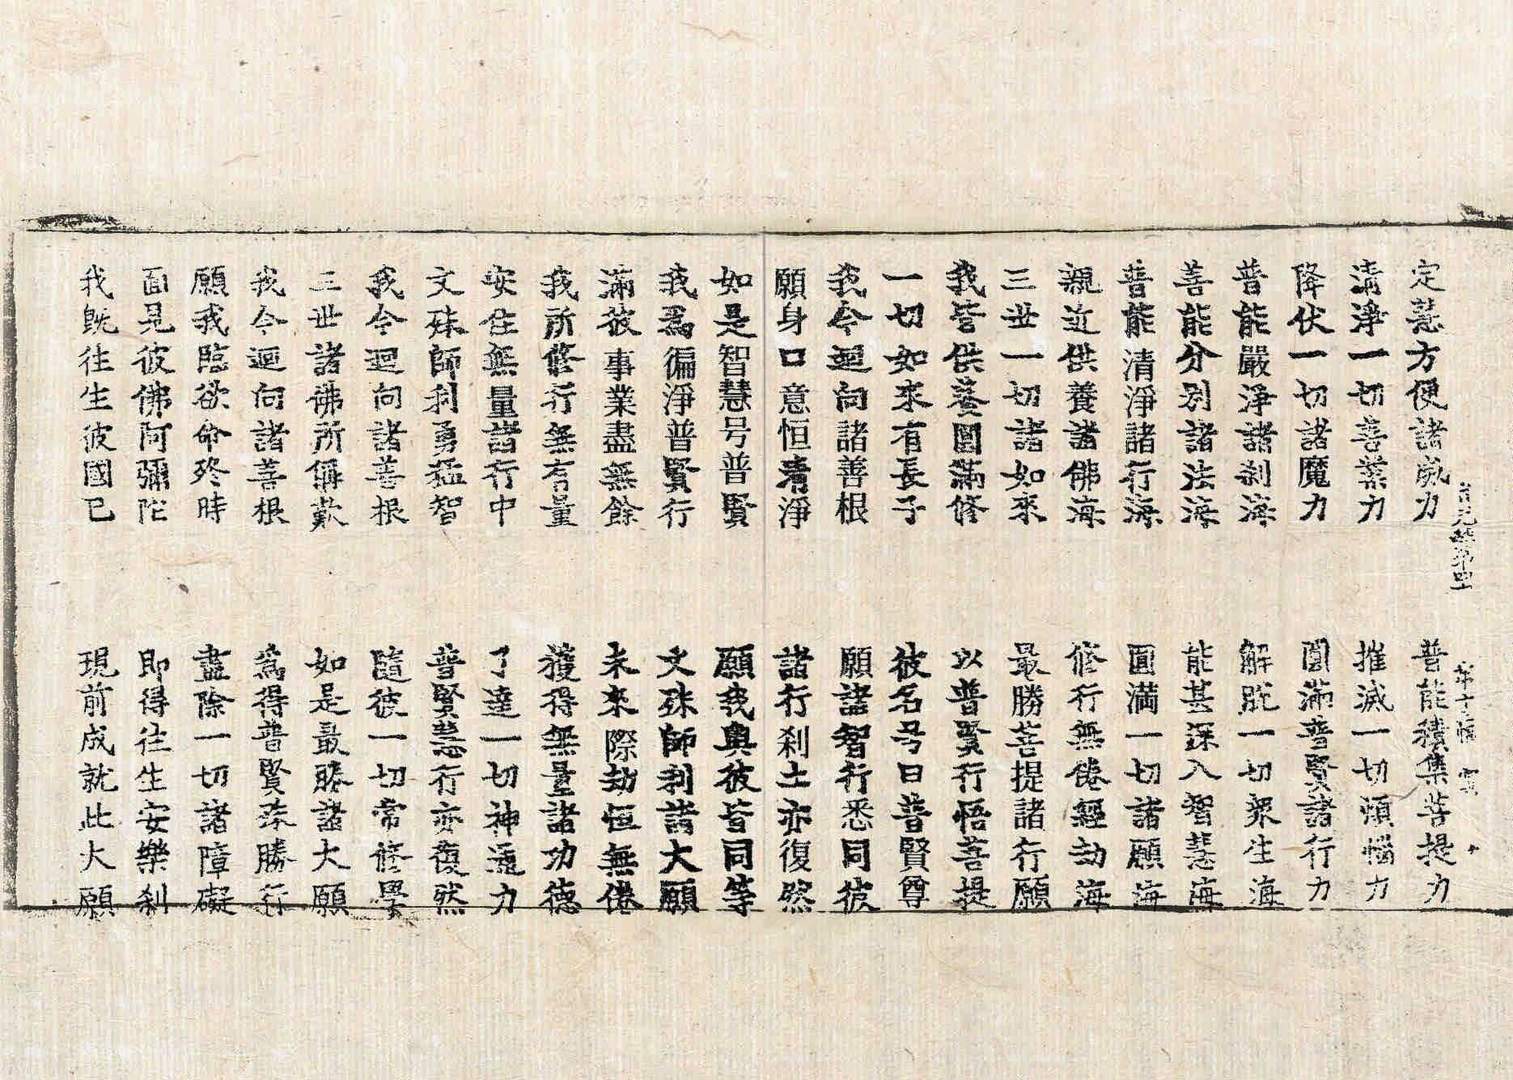 定慧方便諸威力 普能積集菩提力
清淨一切善業力 摧滅一切煩惱力
降伏一切諸魔力 圓滿普賢諸行力
普能嚴淨諸刹海 解脫一切衆生海
善能分別諸法海 能甚深入智慧海
普能清淨諸行海 圓滿一切諸願海
親近供養諸佛海 修行無倦經劫海
三世一切諸如來 最勝菩提諸行願
我皆供養圓滿修 以普賢行悟菩提
一切如來有長子 彼名号曰普賢尊
我今迴向諸善根 願諸智行悉同彼
願身口意恒清淨 諸行刹土亦復然
如是智慧号普賢 願我與彼皆同等
我爲徧淨普賢行 文殊師利諸大願
滿彼事業盡無餘 未來際劫恒無倦
我所修行無有量 獲得無量諸功德
安住無量諸行中 了達一切神通力
文殊師利勇猛智 普賢慧行亦復然
我今迴向諸善根 隨彼一切常修學
三世諸佛所稱歎 如是最勝諸大願
我今迴向諸善根 爲得普賢殊勝行
願我臨欲命終時 盡除一切諸障礙
面見彼佛阿彌陀 即得往生安樂刹
我既往生彼國已 現前成就此大願